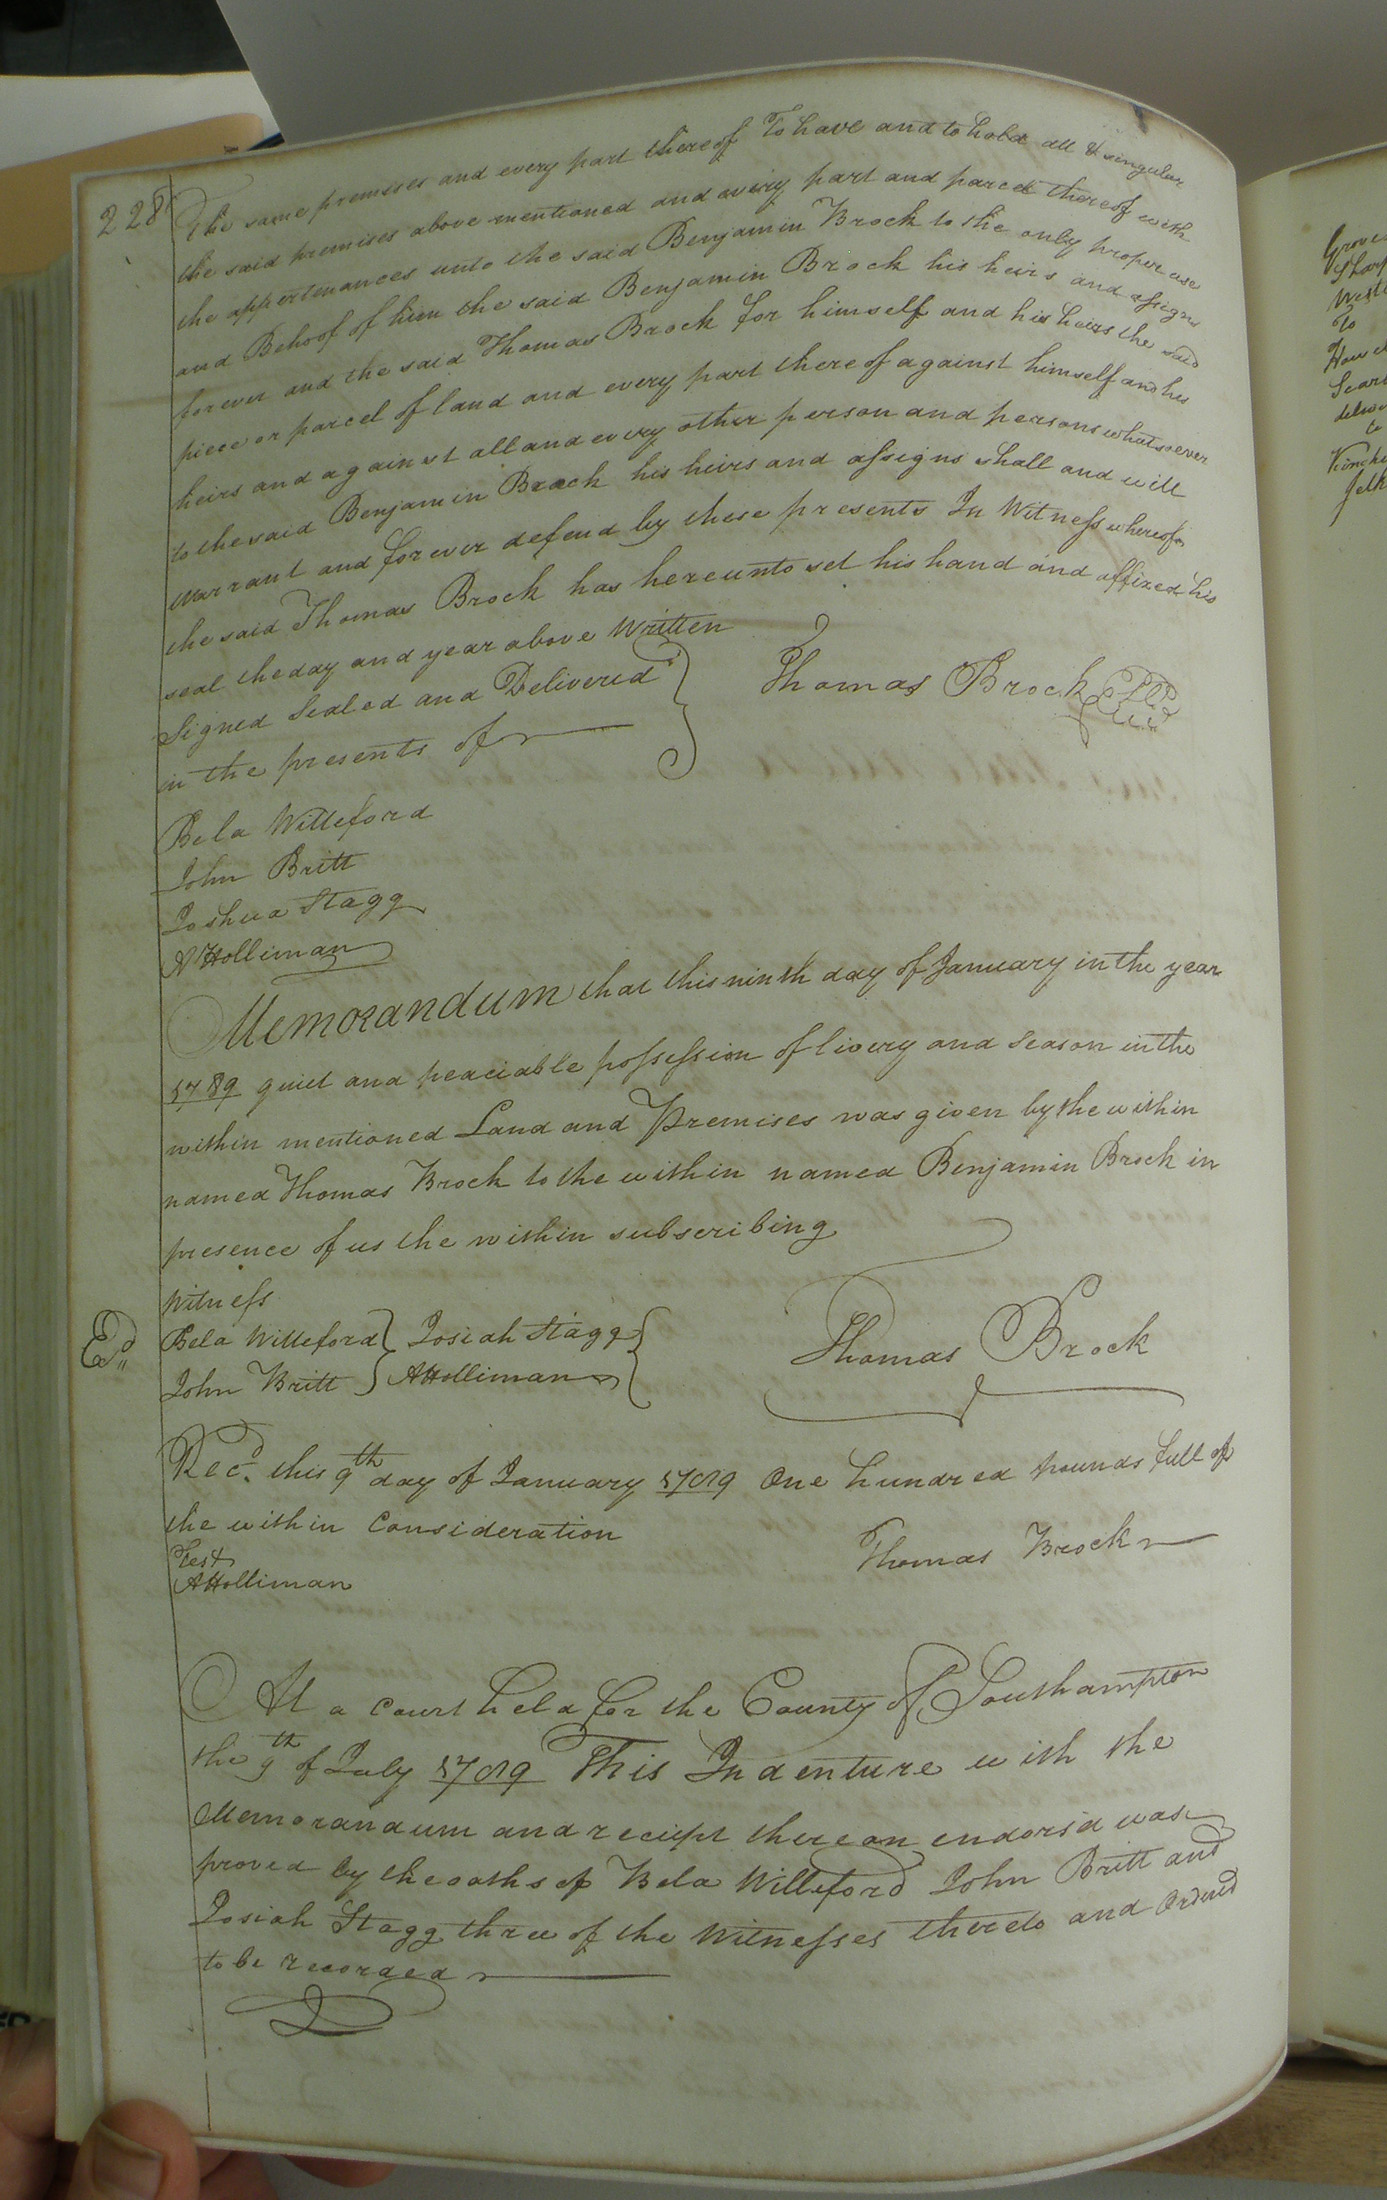 228
The same premises and every part thereof To have and to hold all & singular
the said premises above mentioned and every part and parcel thereof with
the appertinances unto the said Benjamin Brock to the only proper use
and Behoof of him the said Benjamin Brock his heirs and assigns
forever and the said Thomas Brock for himself and his heirs the said
piece or parcel of land and every part thereof against himself and his
heirs and against all and every other person and persons whatsoever
to the said Benjamin Brock his heirs and assigns shall and will
warrant and forever defend by these presents In Witness whereof
the said Thomas Brock has hereunto set his hand and affixed his
seal the day and year above Written
Signed Sealed and Delivered
in the presents of
Thomas Brock
Bela Williford
John Britt
Joshua Stagg
A Holliman
Memorandum that this ninth day of January in the year
1789 quiet and peaciable possession of livery and Season in the
within mentioned Land and Premises was given by the within
named Thomas Brock to the within named Benjamin Brock in
presence of us the within subscribing
Witness
Bela Williford Josiah Stagg
John Britt AHolliman
Thomas Brock
Ed
Recd. this 9th day of January 1789 One hundred pounds full of
the within Consideration
Thomas Brock
Test
AHolliman
At a Court held for the County of Southampton
the 9th of July 1789 This Indenture with the
Memorandum and reciept thereon endorsd was
proved by the oaths of Bela Williford John Britt and
Josiah Stagg three of the Witnesses thereto and Ordered
to be recorded
Grove
West
To
Seare